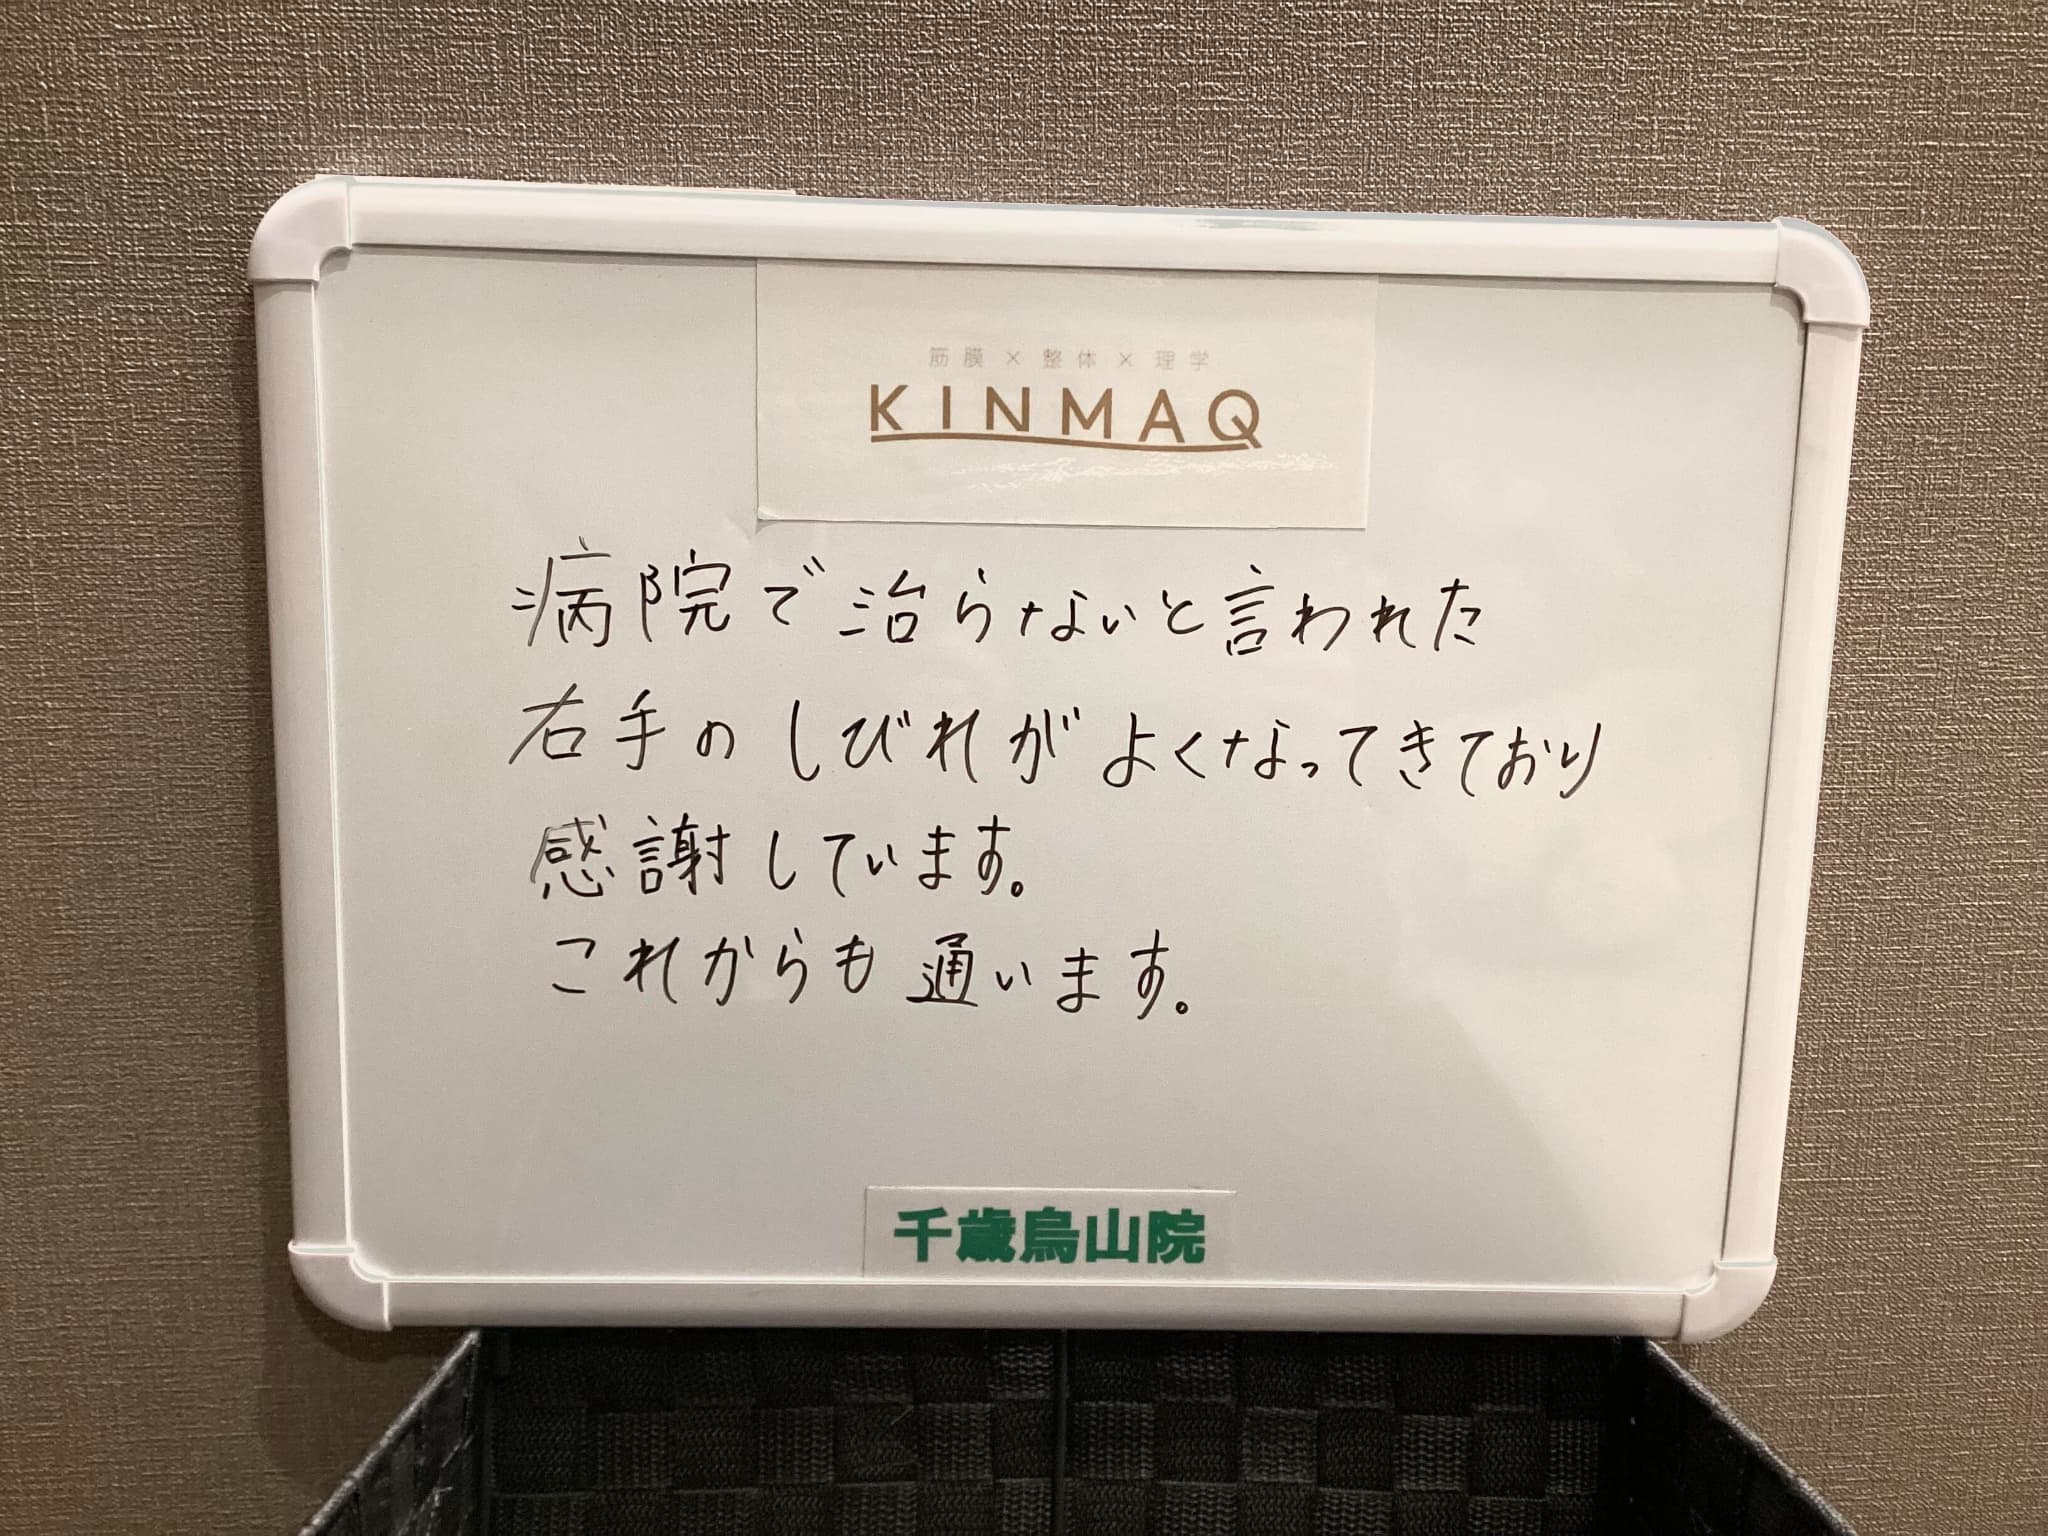 筋膜×整体×理学
KINMAQ
病院で治らないと言われた
右手のしびれがよくなってきており
感謝しています。
これからも通います。
千歳烏山院